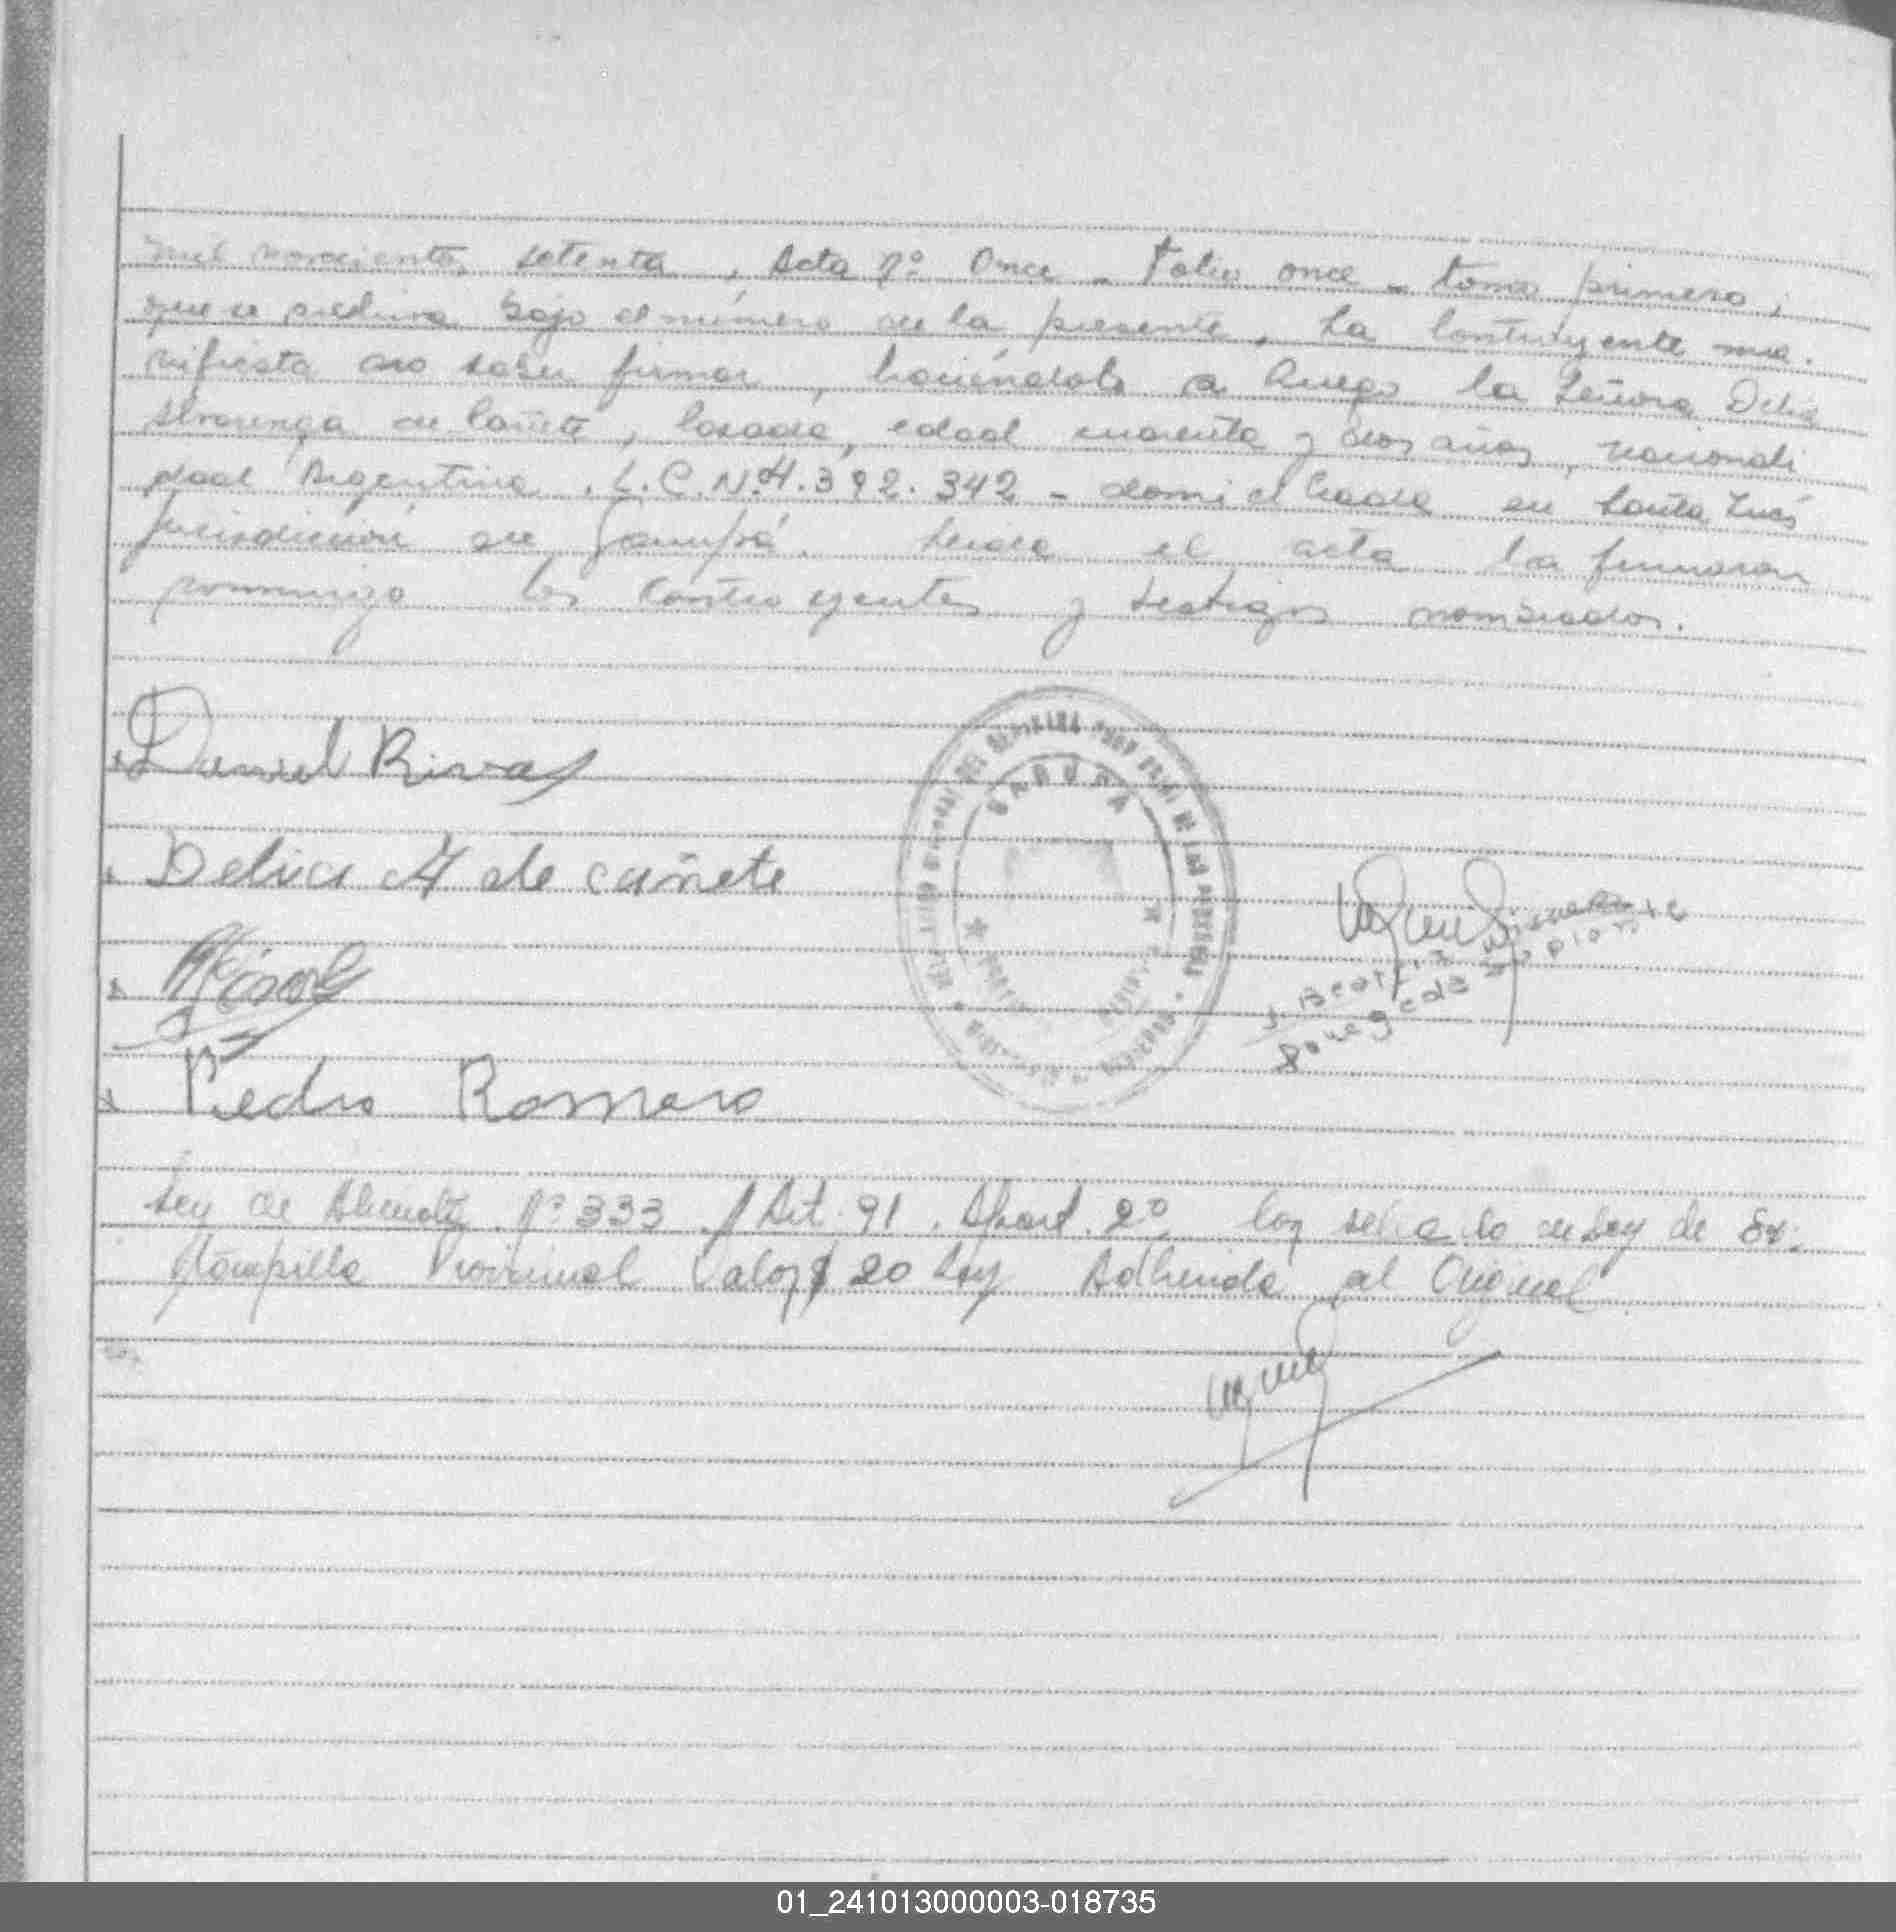 mil novecientos setenta, Acta Nº Once - Folio once - tomo primero,
que se archiva bajo el número de la presente, La Contrayente ma-
nifiesta no saber firmar, haciéndolo a Ruego la Señora Delia
Alvarenga de Cañete, Casada, edad cuarenta y dos años, nacionali
dad Argentina. L.C.Nº 4.392.342 - domiciliada en Santa Inés
jurisdicción de Garupá. Leída el acta la firmaron
conmigo los Contrayentes y testigos nombrados.
Daniel Rivas
Delia A de cañete
GARUPÁ
Pedro Romero
Ley de N° 333 Art. 91. Apart. 2º Ley de
Estampilla Provincial Valor $ 20 Ley Adherida al Original
01_241013000003-018735